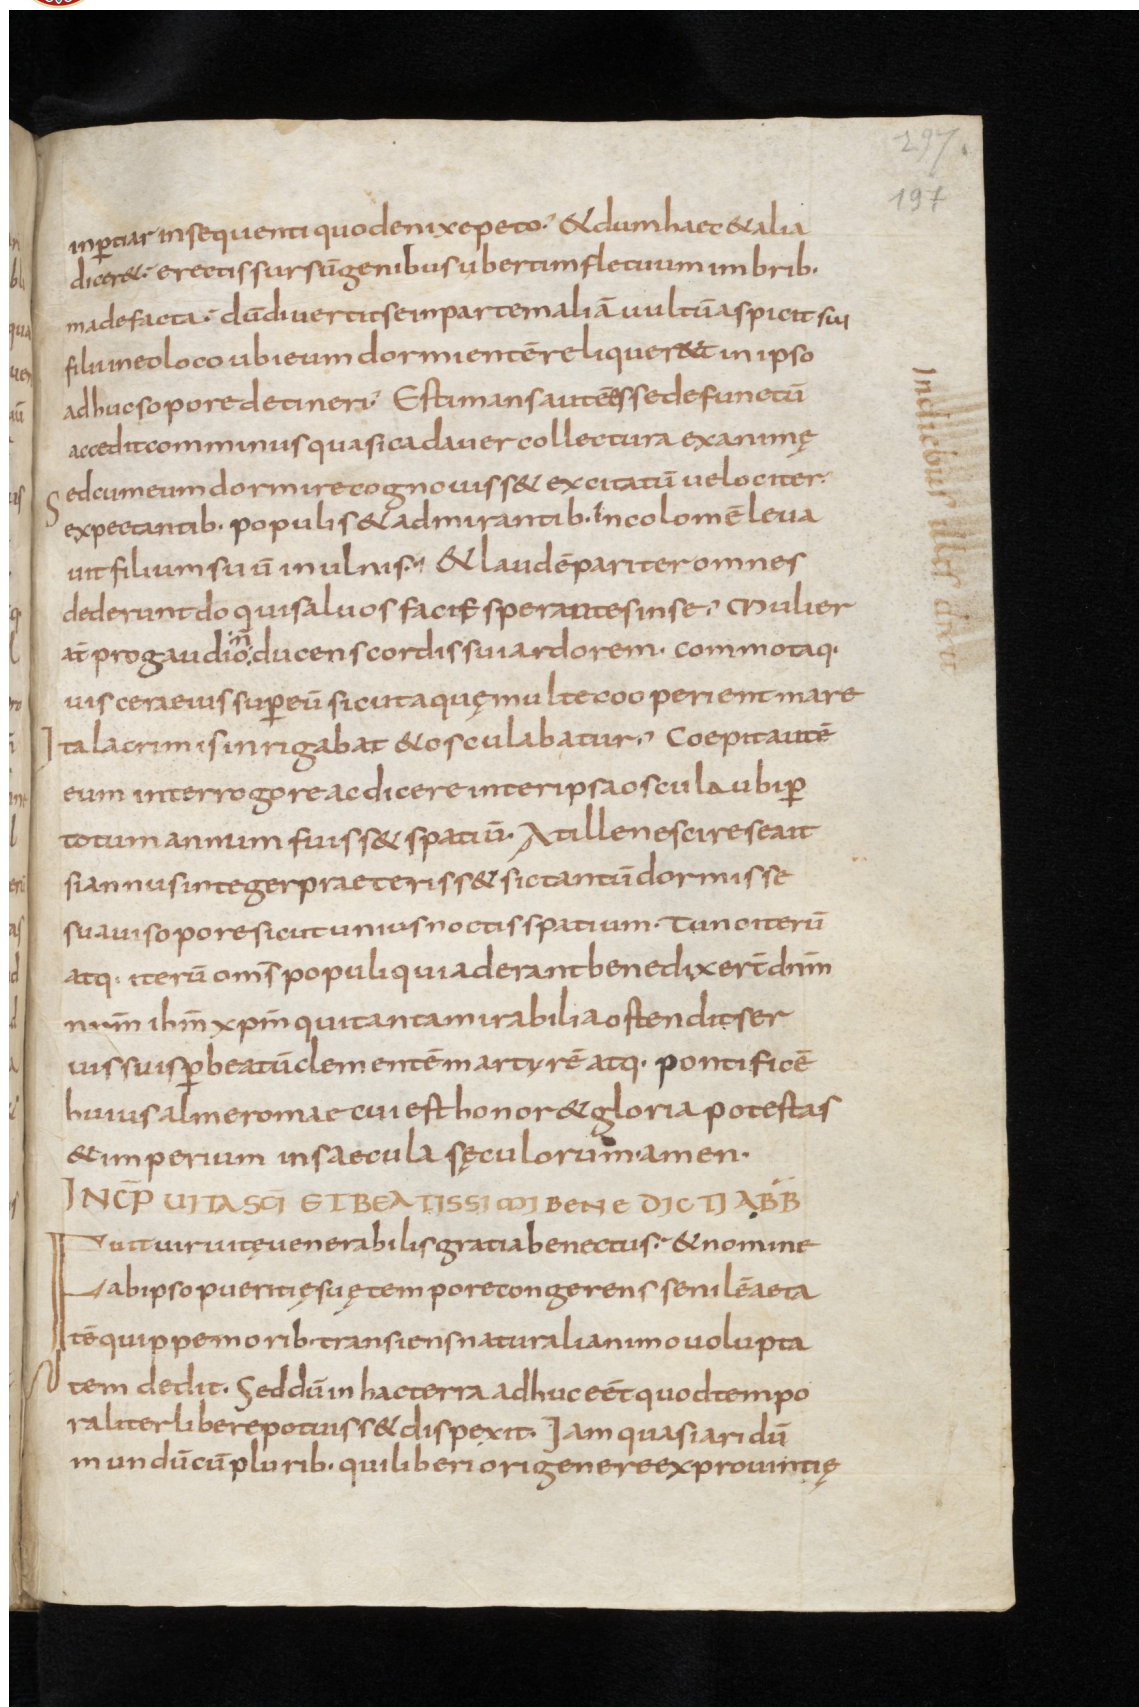 297.
197
inp̄tiar insequenti quod enixe peto. & dum haec & alia
dicer&. erectis sursū genibus ubertim fletuum imbrib.
madefacta. dū divertit se in partem aliā vultū aspicit sui
filii in eo loco ubi eum dormientē reliquerat & in ipso
adhuc sopore detineri. Estimans autē esse defunctū
accedit comminus quasi cadaver collectura exanimę
Sed cum eum dormire cognoviss& excitatū velociter.
expectantib. populis & admirantib. incolomē leva
vit filium suū in ulnis. & laudē pariter omnes
dederunt do qui salvos facit sperantes in se. Mulier
at̄ pro gaudio inducens cordis sui ardorem. commotaq.
viscera eius sup̄ eū sicut aquę multe cooperient mare
Ita lacrimis inrigabat & osculabatur. Coepit autē
eum interrogore ac dicere inter ipsa oscula ubi p̄
totum annum fuiss& spatiū. At ille nescire se ait
si annus integer praeteriss& sic tantū dormisse
suavi sopore sicut unius noctis spatium. Tunc iterū
atq. iterū om̄s populi qui aderant benedixer̄t dn̄m
nr̄m ih̄m xp̄m qui tanta mirabilia ostendit ser
vis suis p̄ beatū clementē martyrē atq. pontificē
huius alme romae cui est honor & gloria potestas
& imperium in saecula sęculorum. amen.
INCP̄ VITA SC̄I ET BEATISSIMI BENEDICTI ABB̄
Fuit vir vitę venerabilis gratia benectus. & nomine
ab ipso pueritię suę tempore cor gerens senilē aeta
tē quippe morib. transiens natura li animo volupta
tem dedit. Sed dū in hac terra adhuc eēt quod tempo
raliter libere potuiss& dispexit. Iam quasi aridū
mundū cū plurib. qui liberiori genere ex provintię
In diebus illis dixit